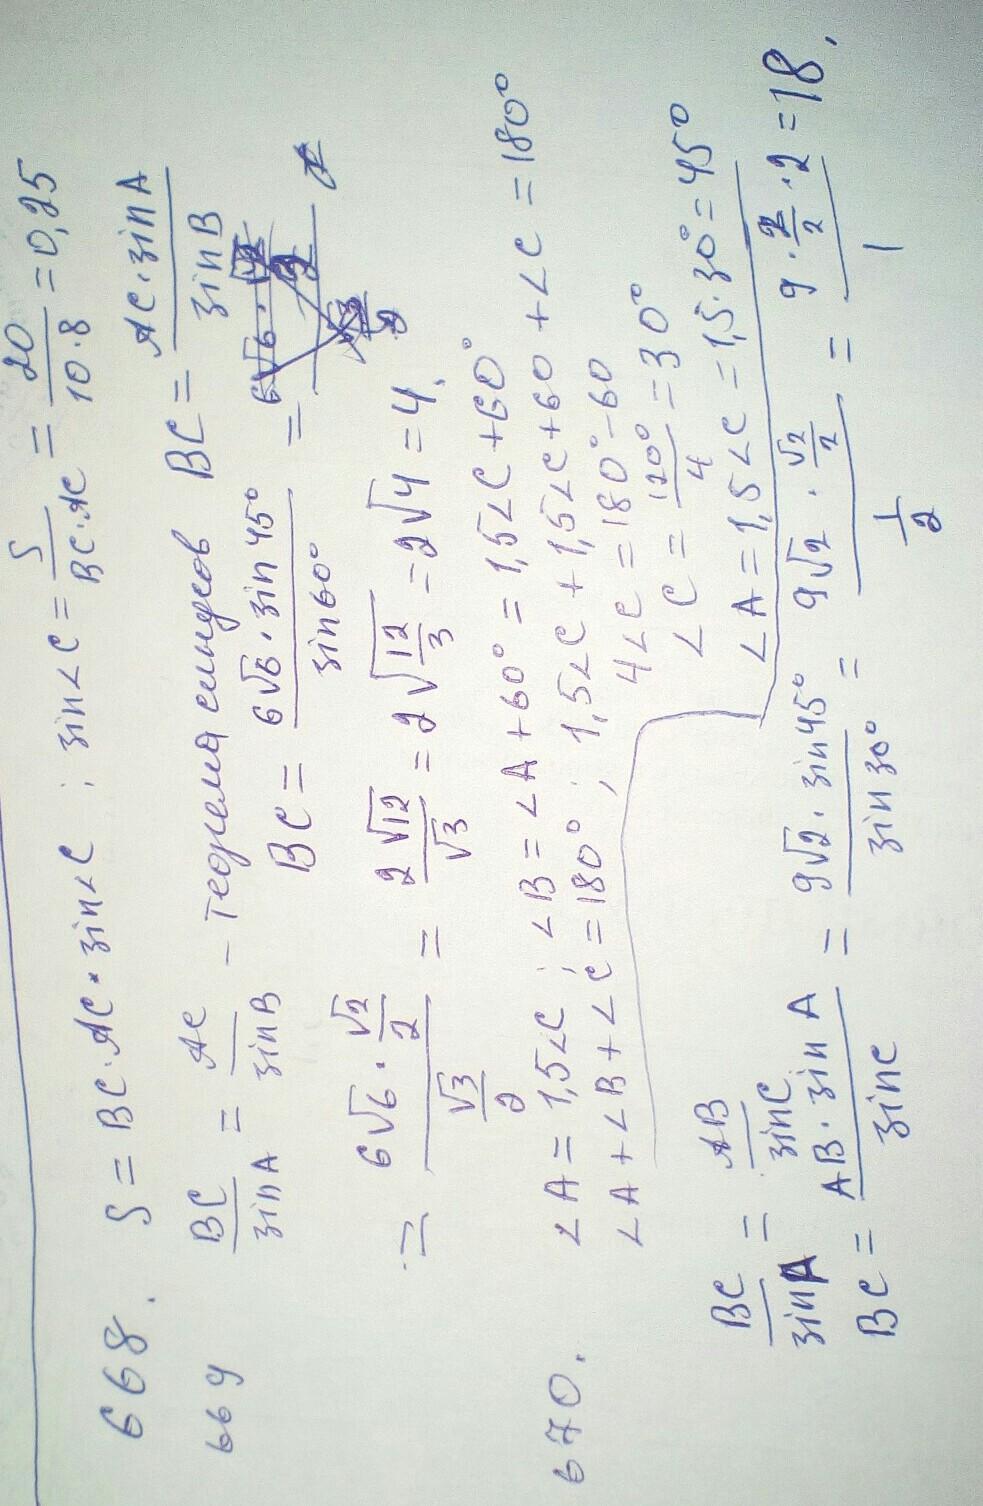 668. S = BC·AC·sin∠C ; sin∠C = S/(BC·AC) = 20/(10·8) = 0,25
669 BC/sinA = AC/sinB – теорема синусов BC = (AC·sinA)/sinB
BC = (6√6·sin45°)/sin60° =
= (6√6·√2/2)/(√3/2) = 2√12/√3 = 2√(12/3) = 2√4 = 4.
670. ∠A = 1,5∠C ; ∠B = ∠A + 60° = 1,5∠C + 60°
∠A + ∠B + ∠C = 180° ; 1,5∠C + 1,5∠C + 60 + ∠C = 180°
4∠C = 180° - 60
∠C = 120°/4 = 30°
∠A = 1,5∠C = 1,5·30° = 45°
BC/sinA = AB/sinC
BC = (AB·sinA)/sinC = (9√2·sin45°)/sin30° = (9√2·√2/2)/(1/2) = (9·2/2·2)/1 = 18.